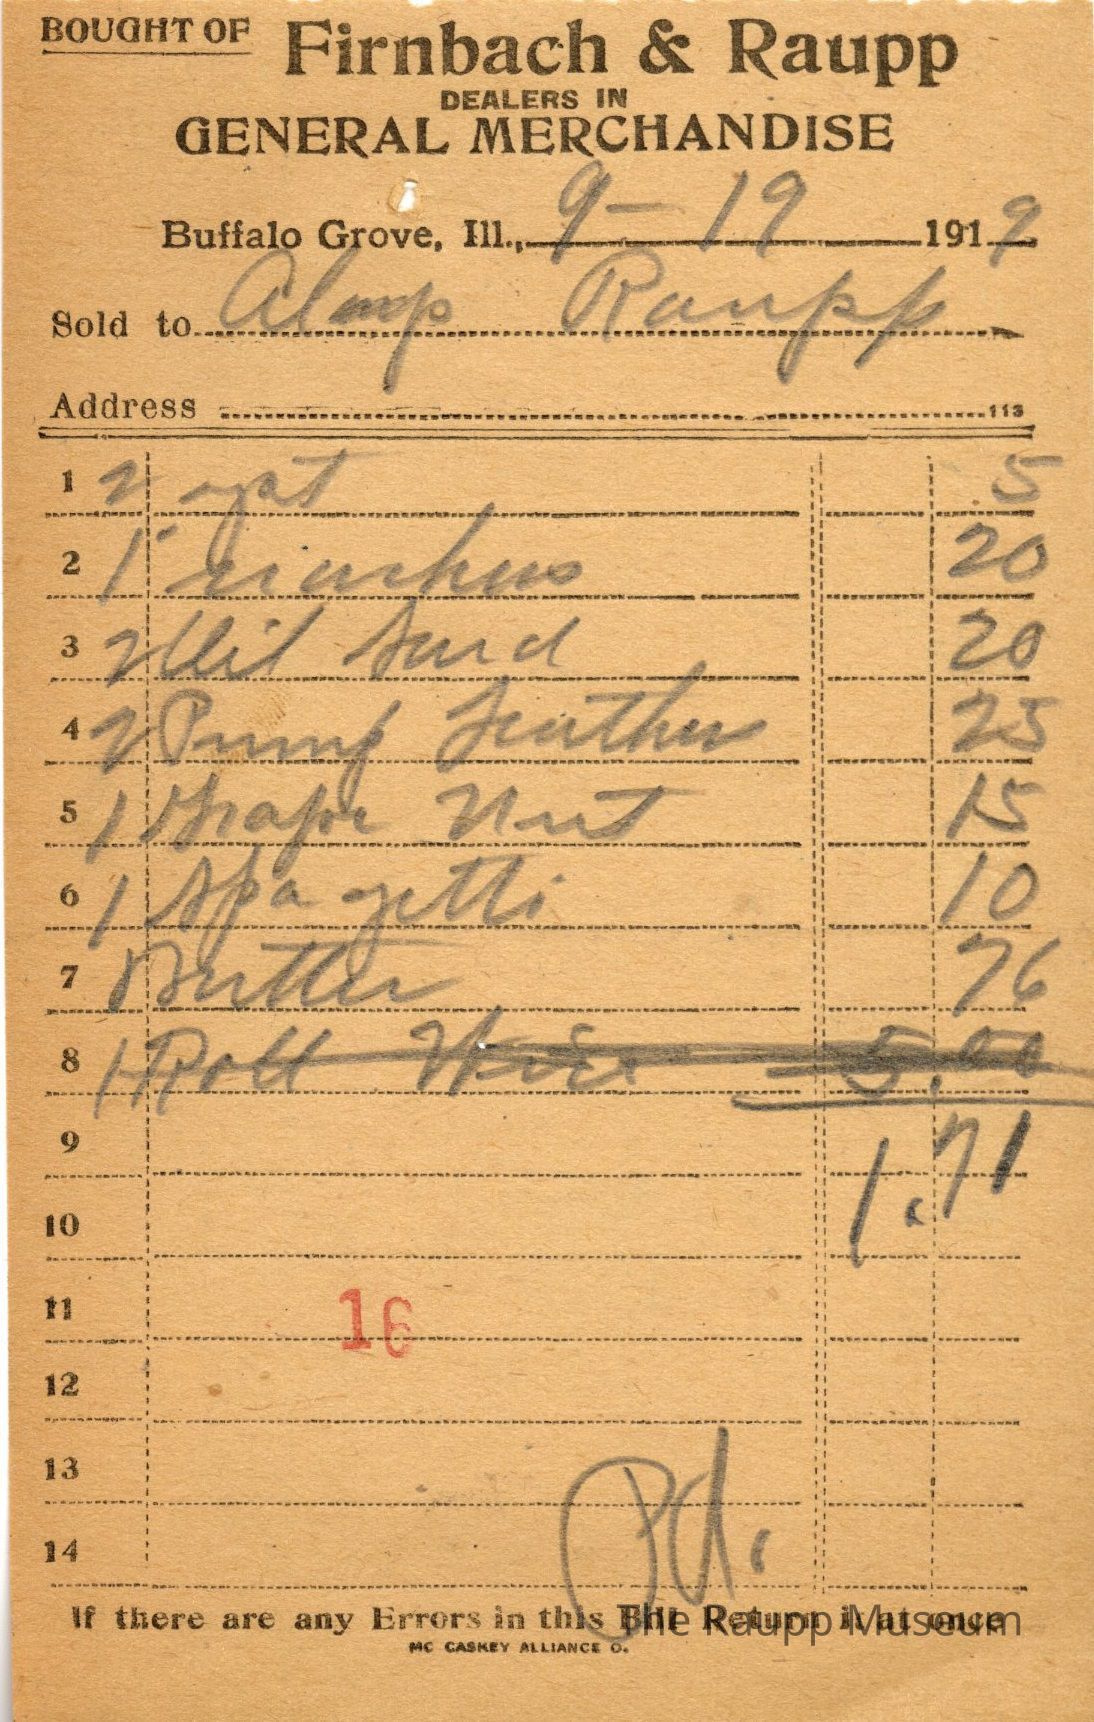 BOUGHT OF Firnbach & Raupp
DEALERS IN
GENERAL MERCHANDISE
Buffalo Grove, Ill., 9-19 1919
Sold to Raupp
Address 113
1 2 5
2 1 20
3 2 20
4 2 Pump Leather 25
5 1 Grape Nut 15
6 1 Spagetti 10
7 Butter 76
8 1 Roll Wire 5.00
9 1.71
10
11 16
12
13
14 Pd.
If there are any Errors in this Bill Return it at once
The Raupp Museum
MC CASKEY ALLIANCE O.